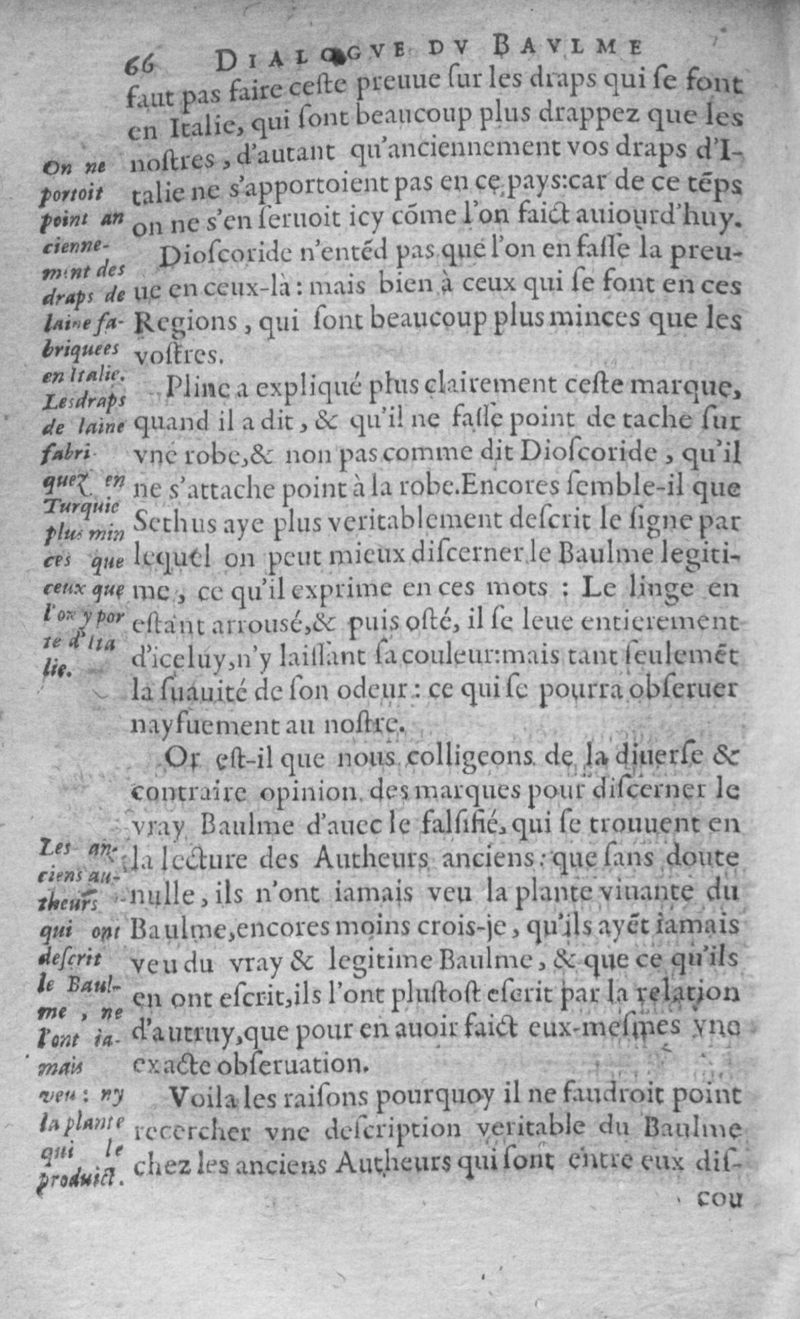 66 DIALOGVE DV BAVLME
faut pas faire ceſte preuue ſur les draps qui ſe font
en Italie, qui ſont beaucoup plus drappez que les
noſtres, d'autant qu'anciennement vos draps d'I-
talie ne s'apportoient pas en ce pays: car de ce tẽps
on ne s'en ſeruoit icy cõme l'on faict auiourd'huy.
Dioſcoride n'entẽd pas que l'on en faſſe la preu-
ue en ceux-là: mais bien à ceux qui ſe font en ces
Regions, qui ſont beaucoup plus minces que les
voſtres.
Pline a expliqué plus clairement ceſte marque,
quand il a dit, & qu'il ne faſſe point de tache ſur
vne robe, & non pas comme dit Dioſcoride, qu'il
ne s'attache point à la robe. Encores ſemble-il que
Sethus aye plus veritablement deſcrit le ſigne par
lequel on peut mieux diſcerner le Baulme legiti-
me, ce qu'il exprime en ces mots : Le linge en
eſtant arrousé, & puis oſté, il ſe leue entierement
d'iceluy, n'y laiſſant ſa couleur: mais tant ſeulemẽt
la ſuauité de ſon odeur : ce qui ſe pourra obſeruer
nayfuement au noſtre.
Or eſt-il que nous colligeons de la diuerſe &
contraire opinion des marques pour diſcerner le
vray Baulme d'auec le falſifié, qui ſe trouuent en
la lecture des Autheurs anciens: que ſans doute
nulle, ils n'ont iamais veu la plante viuante du
Baulme, encores moins crois-je, qu'ils ayẽt iamais
veu du vray & legitime Baulme, & que ce qu'ils
en ont eſcrit, ils l'ont pluſtoſt eſcrit par la relation
d'autruy, que pour en auoir faict eux-meſmes vne
exacte obſeruation.
Voila les raiſons pourquoy il ne faudroit point
recercher vne deſcription veritable du Baulme
chez les anciens Autheurs qui ſont entre eux diſ-
cou
On ne
portoit
point an
cienne-
ment des
draps de
laine fa-
briquees
en Italie.
Les draps
de laine
fabri-
quez en
Turquie
plus min
ces que
ceux que
l'on y por
te d'Ita
lie.
Les an-
ciens au-
theurs
qui ont
deſcrit
le Baul-
me, ne
l'ont ia-
mais
veu : ny
la plante
qui le
produict.